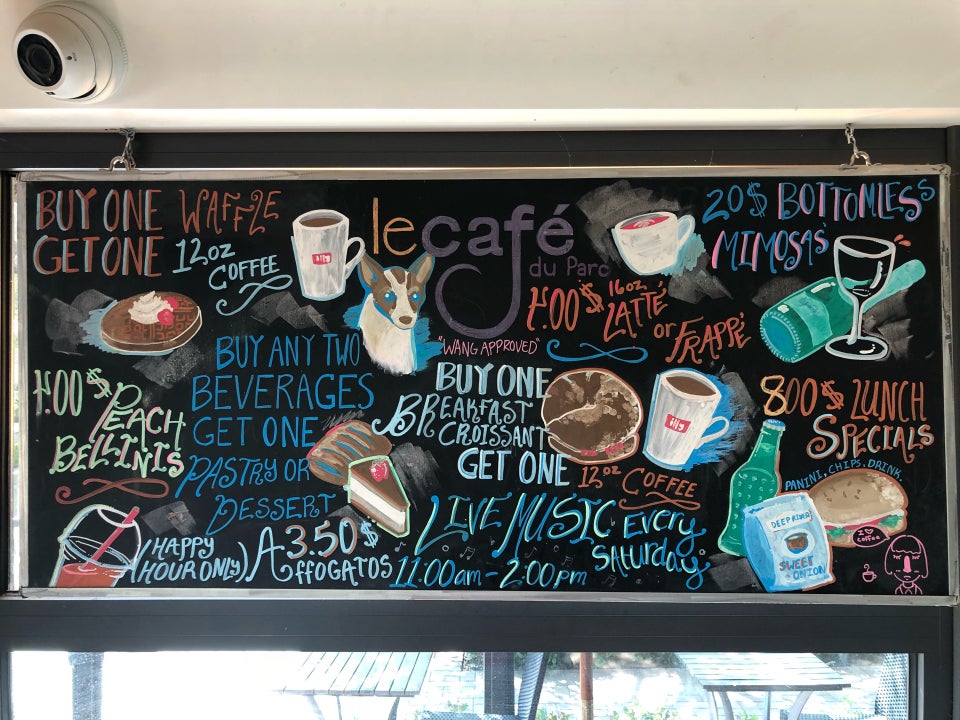 BUY ONE WAFFLE
GET ONE 12oz
COFFEE
illy
lecafé
du Parc
"WANG APPROVED"
4.00$ 16oz
LATTÉ
or FRAPPÉ
20$ BOTTOMLESS
MIMOSAS
4.00$
PEACH
BELLINIS
(HAPPY
HOUR ONLY)
BUY ANY TWO
BEVERAGES
GET ONE
PASTRY OR
DESSERT
3.50$
AFFOGATOS
BUY ONE
BREAKFAST
CROISSANT
GET ONE
12oz
COFFEE
illy
LIVE MUSIC Every
SATURDAY
11:00am - 2:00pm
800$ LUNCH
SPECIALS
PANINI, CHIPS, DRINK.
DEEP RIVER
SWEET
ONION
I ♡
coffee